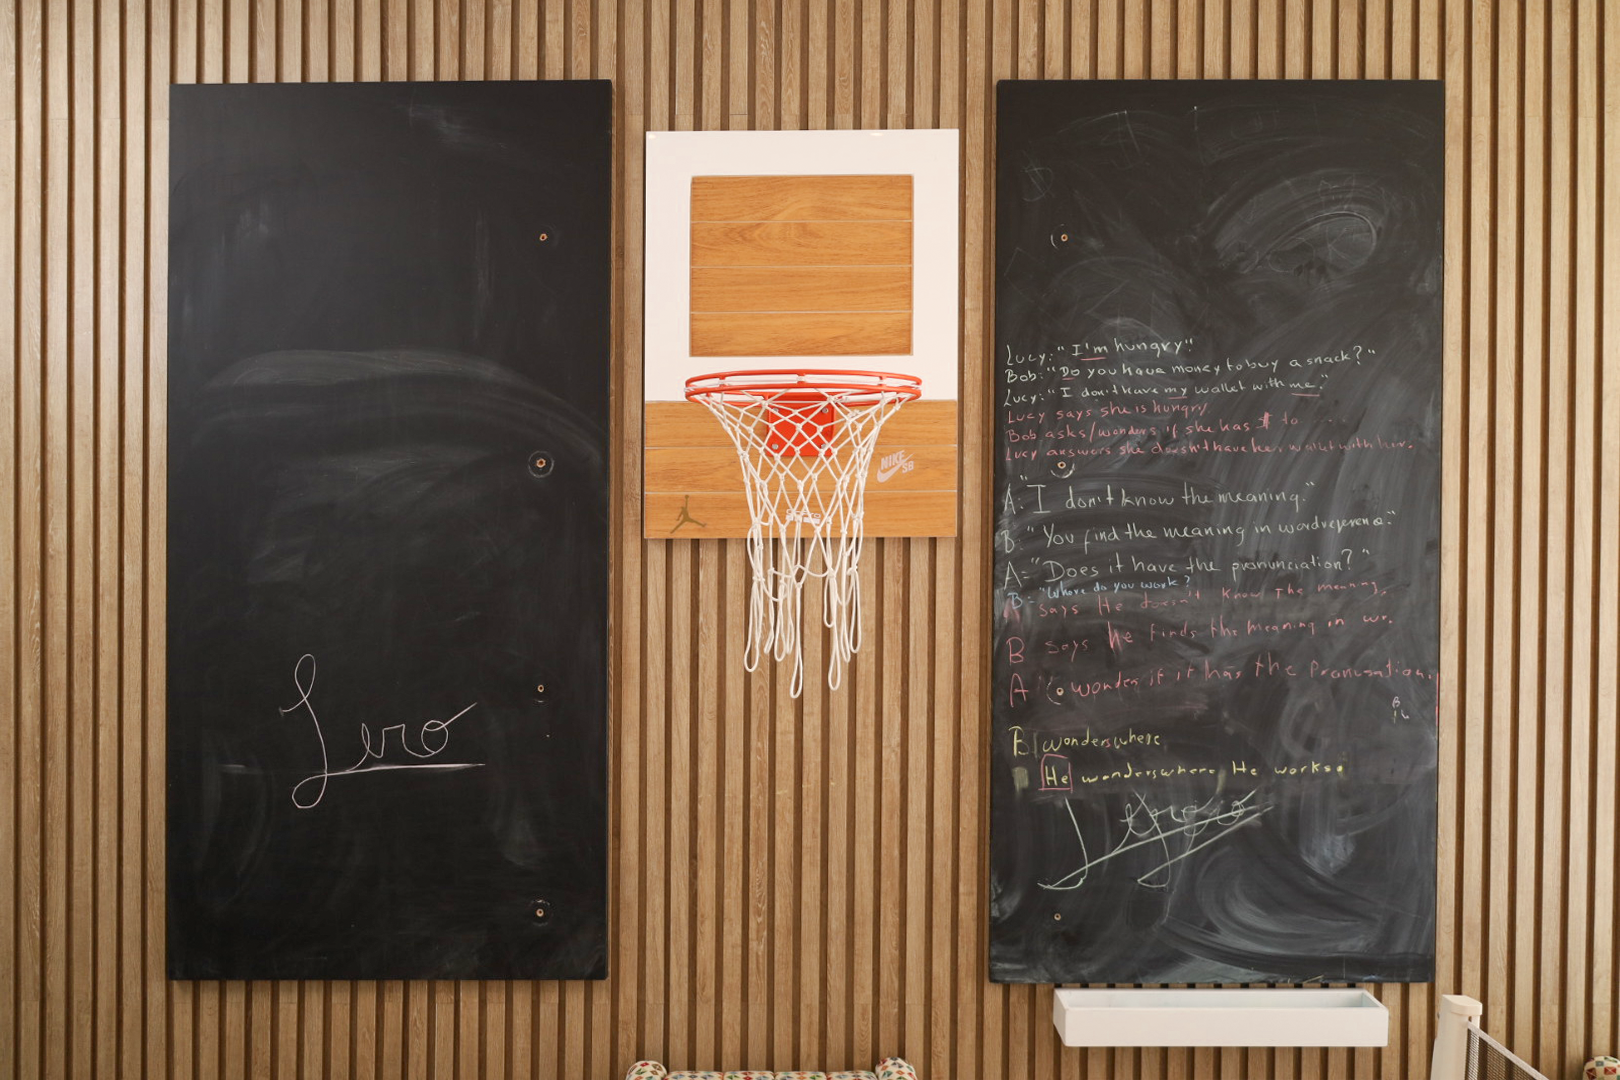 Lero
NIKE
SB
Lucy: "I'm hungry"
Bob: "Do you have money to buy a snack?"
Lucy: "I don't have my wallet with me."
Lucy says she is hungry
Bob asks/wonders if she has $ to
Lucy answers she doesn't have her wallet with her.
A: "I don't know the meaning."
B: "You find the meaning in wordreference."
A: "Does it have the pronunciation?"
B: "Where do you work?"
A says He doesn't know the meaning.
B says he finds the meaning in wr.
A wonder if it has the
B wonderswhere
He wonderswhere He works.